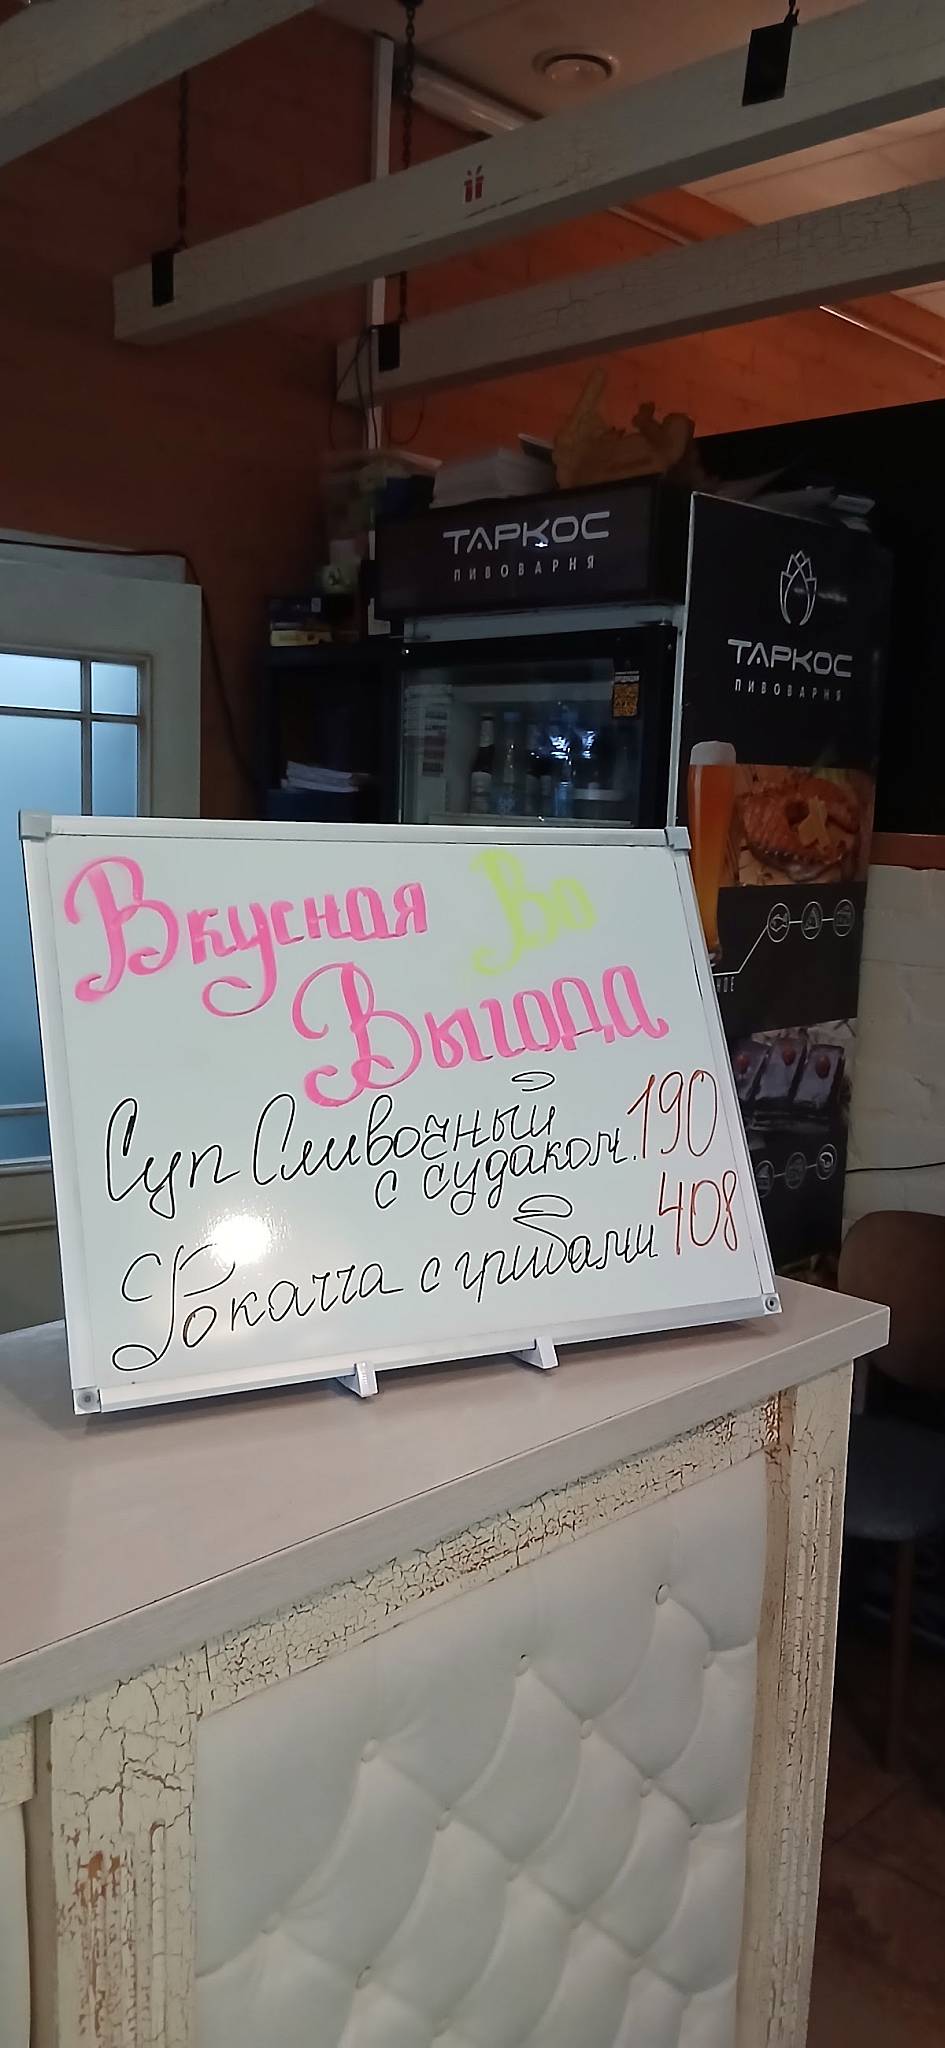 ТАРКОС
ПИВОВАРНЯ
ТАРКОС
ПИВОВАРНЯ
Вкусная Во
Выгода
Суп Сливочный
с судаком. 190
Фокачча с грибами 408